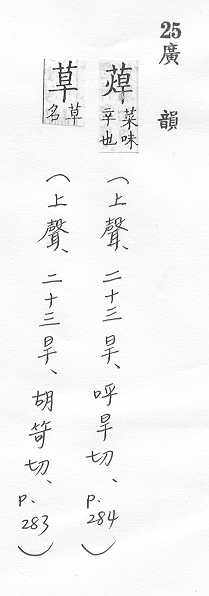 25廣韻
菜味辛也
(上聲、二十三旱、呼旱切、p.284)
草名
(上聲、二十三旱、胡笴切、p.283)